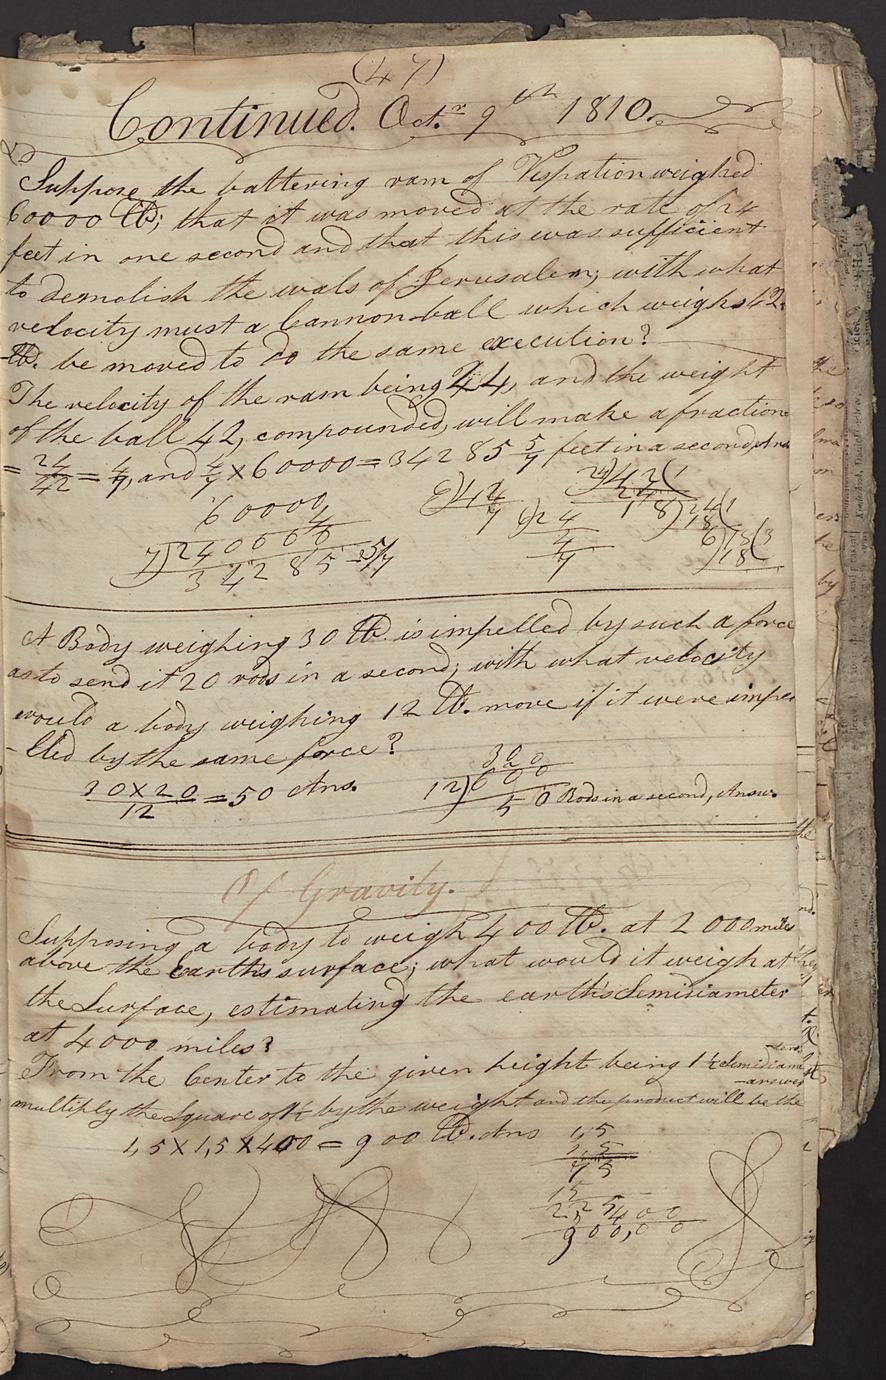 (47)
Continued. Oct.r 9th 1810.
Suppose the battering ram of Vespation weighed
60000 lb; that it was moved at the rate of 24
feet in one second and that this was sufficient
to demolish the wals of Jerusalem; with what
velocity must a Cannon-ball which weighs 42
lb. be moved to do the same execution?
The velocity of the ram being 24, and the weight
of the ball 42, compounded, will make a fraction
= 24/42 = 4/7, and 4/7 × 60000 = 34285 5/7 feet in a second, Ans
60000
4
7)240000
34285 5/7
6)42
7
6)24
4
4/7
24)42(1
24
18)24(1
18
6)18(3
18
A Body weighing 30 lb. is impelled by such a force
as to send it 20 rods in a second; with what velocity
would a body weighing 12 lb. move if it were impe
-lled by the same force?
30×20/12 = 50 Ans.
30
20
12)600
50 Rods in a second, Answ.
Of Gravity.
Supposing a body to weigh 400 lb. at 2000 miles
above the Earth's surface; what would it weigh at
the Surface, estimating the earth's Semidiameter
at 4000 miles?
From the Center to the given height being 1½ Semidiam
multiply the Square of 1½ by the weight and the product will be the
-answer
1,5×1,5×400 = 900 lb. Ans
1,5
1,5
75
15
2,25
400
900,00